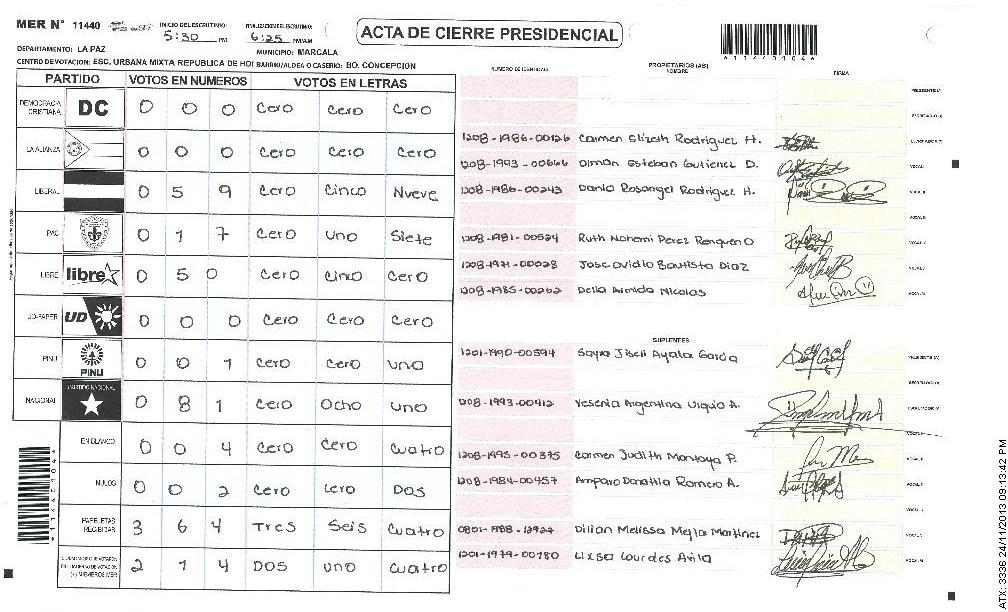 MER N° 11440 INICIO DEL ESCRUTINIO: 5:30 PM FINALIZACION DEL ESCRUTINIO: 6:25 PM/AM
ACTA DE CIERRE PRESIDENCIAL
DEPARTAMENTO: LA PAZ MUNICIPIO: MARCALA
CENTRO DE VOTACION: ESC. URBANA MIXTA REPUBLICA DE HOI BARRIO/ALDEA O CASERIO: BO. CONCEPCION
PARTIDO VOTOS EN NUMEROS VOTOS EN LETRAS
DEMOCRACIA CRISTIANA DC 0 0 0 Cero Cero Cero
LA ALIANZA 0 0 0 Cero Cero Cero
LIBERAL 0 5 9 Cero Cinco Nueve
PAC 0 1 7 Cero uno Siete
LIBRE libre 0 5 0 Cero Cinco Cero
UD-FAPER UD 0 0 0 Cero Cero Cero
PINU PINU 0 0 1 Cero Cero uno
NACIONAL PARTIDO NACIONAL 0 8 1 Cero Ocho uno
EN BLANCO 0 0 4 Cero Cero Cuatro
NULOS 0 0 2 Cero Cero Dos
PAPELETAS RECIBIDAS 3 6 4 Tres Seis Cuatro
2 1 4 DOS uno Cuatro
NUMERO DE IDENTIDAD PROPIETARIOS (AS) NOMBRE FIRMA
1208-1986-00126 Carmen Elizeth Rodriguez H.
1208-1993-00666 Esteban Gutierrez D.
1208-1986-00243 Rosangel Rodriguez H.
1208-1981-00524 Ruth Nohemi Perez
1208-1971-00028 Jose Ovidio Bautista Diaz
1208-1985-00262 Nicolas
SUPLENTES
1201-1990-00594 Ayala Garcia
1208-1993-00412 Yesenia Argentina Urquio A.
1208-1995-00375 Carmen Judith Montoya P.
1208-1984-00457 Amparo Donatila Romero A.
0801-1988-13927 Dilian Melissa Mejia Martinez
1201-1979-00780 Lixsa Lourdes Avila
*11440104*
ATX: 3336 24/11/2013 09:13:42 PM